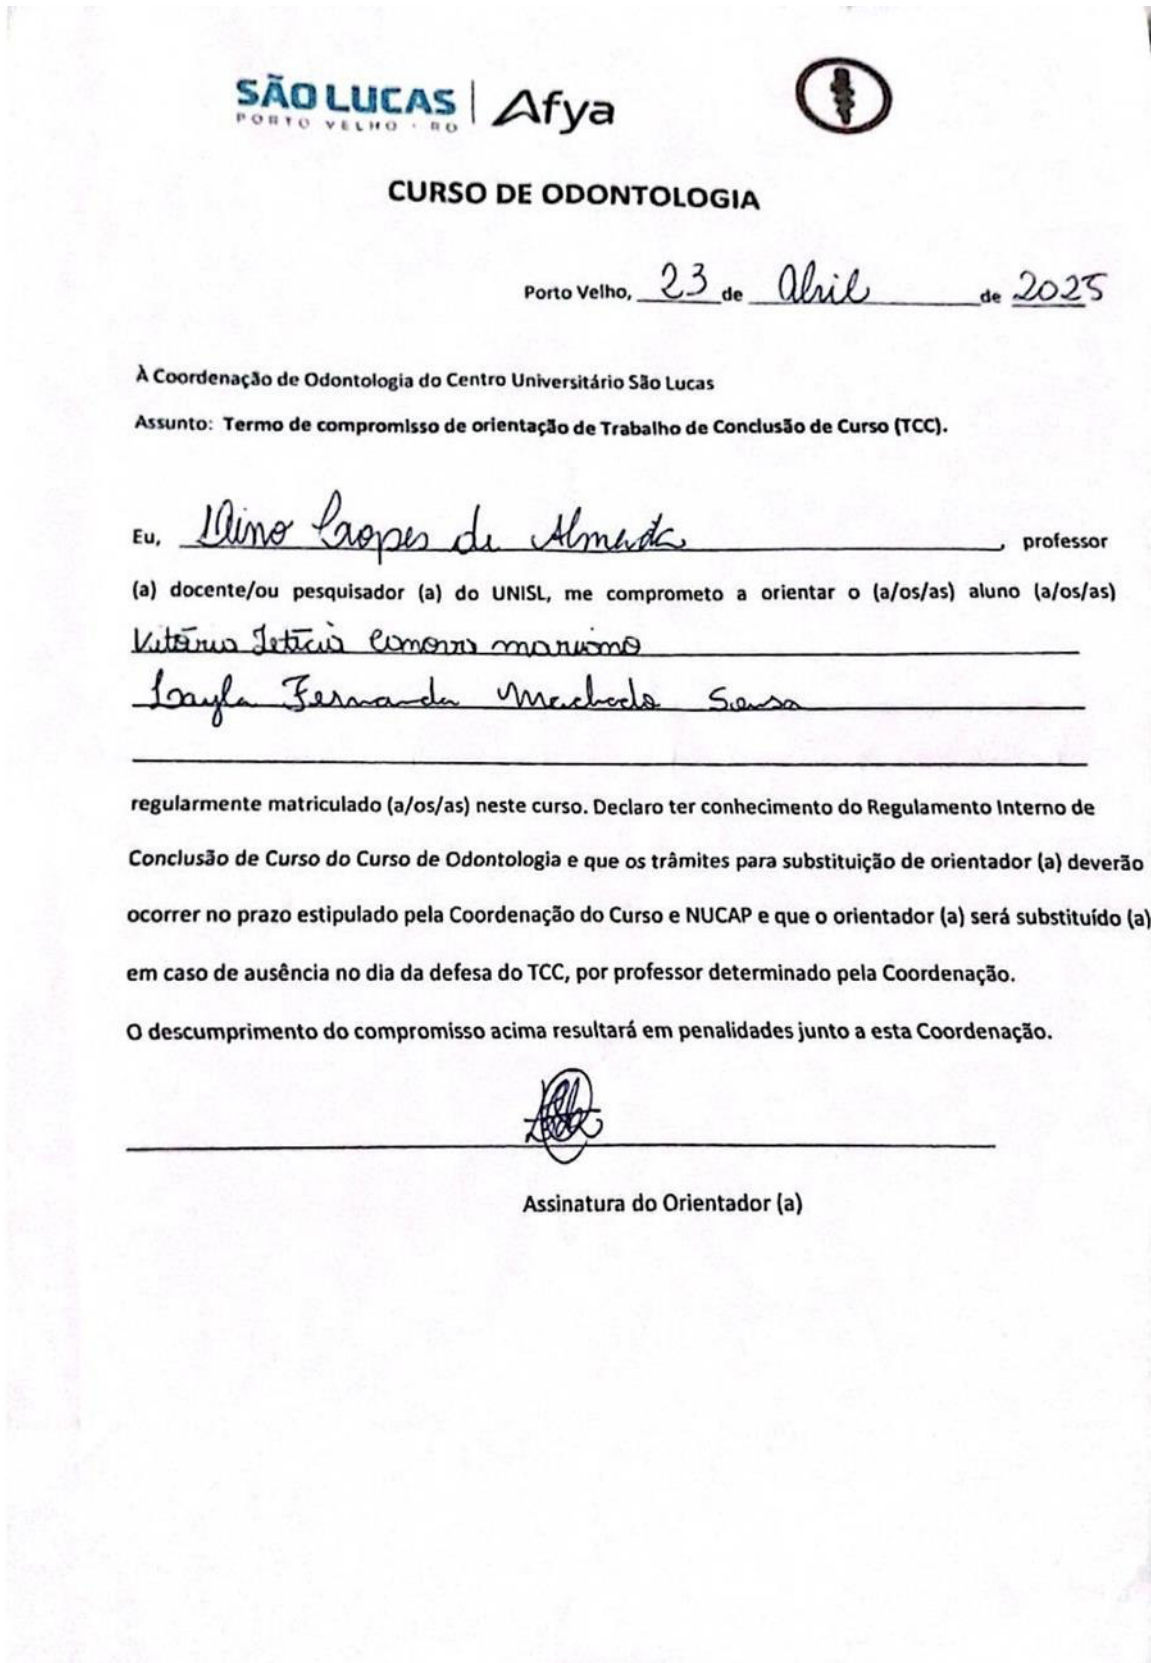 SÃO LUCAS | Afya
PORTO VELHO · RO
CURSO DE ODONTOLOGIA
Porto Velho, 23 de Abril de 2025
À Coordenação de Odontologia do Centro Universitário São Lucas
Assunto: Termo de compromisso de orientação de Trabalho de Conclusão de Curso (TCC).
Eu, de Almeida, professor
(a) docente/ou pesquisador (a) do UNISL, me comprometo a orientar o (a/os/as) aluno (a/os/as)
Vitória Letícia
Fernanda Machado Sousa
regularmente matriculado (a/os/as) neste curso. Declaro ter conhecimento do Regulamento Interno de
Conclusão de Curso do Curso de Odontologia e que os trâmites para substituição de orientador (a) deverão
ocorrer no prazo estipulado pela Coordenação do Curso e NUCAP e que o orientador (a) será substituído (a)
em caso de ausência no dia da defesa do TCC, por professor determinado pela Coordenação.
O descumprimento do compromisso acima resultará em penalidades junto a esta Coordenação.
Assinatura do Orientador (a)